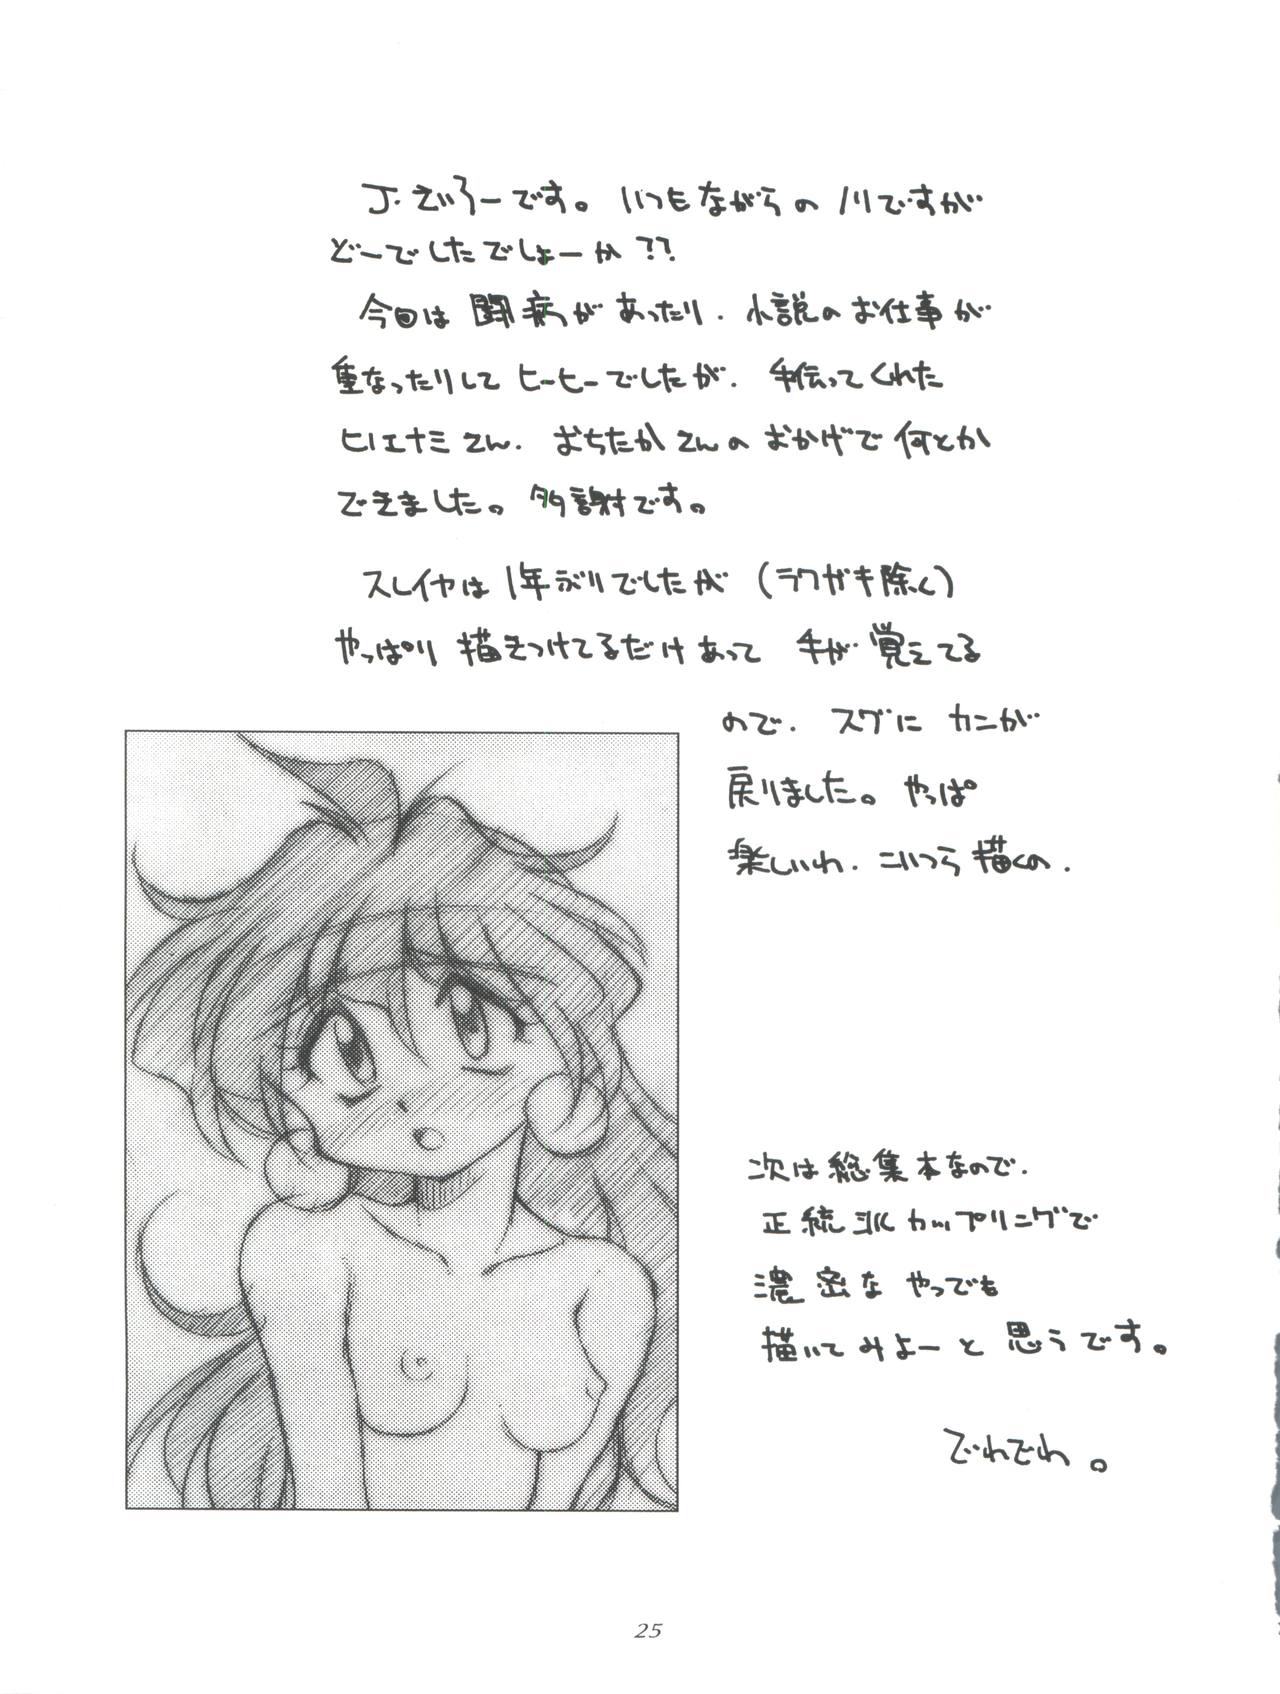 J・さいろーです。いつもながらのノリですが
どーでしたでしょーか??
今回は闘病があったり、小説のお仕事が
重なったりしてヒーヒーでしたが、手伝ってくれた
ヒノエナミさん、おちたかさんのおかげで何とか
できました。多謝です。
スレイヤは1年ぶりでしたが(ラクガキ除く)
やっぱり描きつけてるだけあって手が覚えてる
ので、スグにカンが
戻りました。やっぱ
楽しいわ、こいつら描くの.
次は総集本なので、
正統派カップリングで
濃密なやつでも
描いてみよーと思うです。
でわでわ。
25